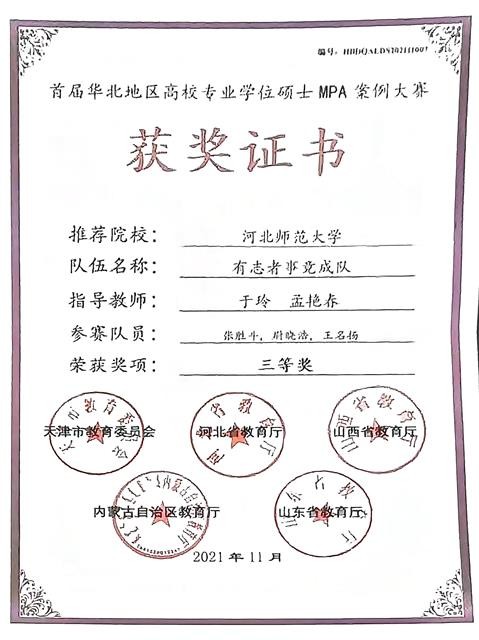 编号：HBDQALDS202111007
首届华北地区高校专业学位硕士 MPA 案例大赛
获奖证书
推荐院校： 河北师范大学
队伍名称： 有志者事竟成队
指导教师： 于玲 孟艳春
参赛队员： 张胜斗，尉晓浩，王名扬
荣获奖项： 三等奖
天津市教育委员会 河北省教育厅 山西省教育厅
内蒙古自治区教育厅 山东省教育厅
2021 年 11 月